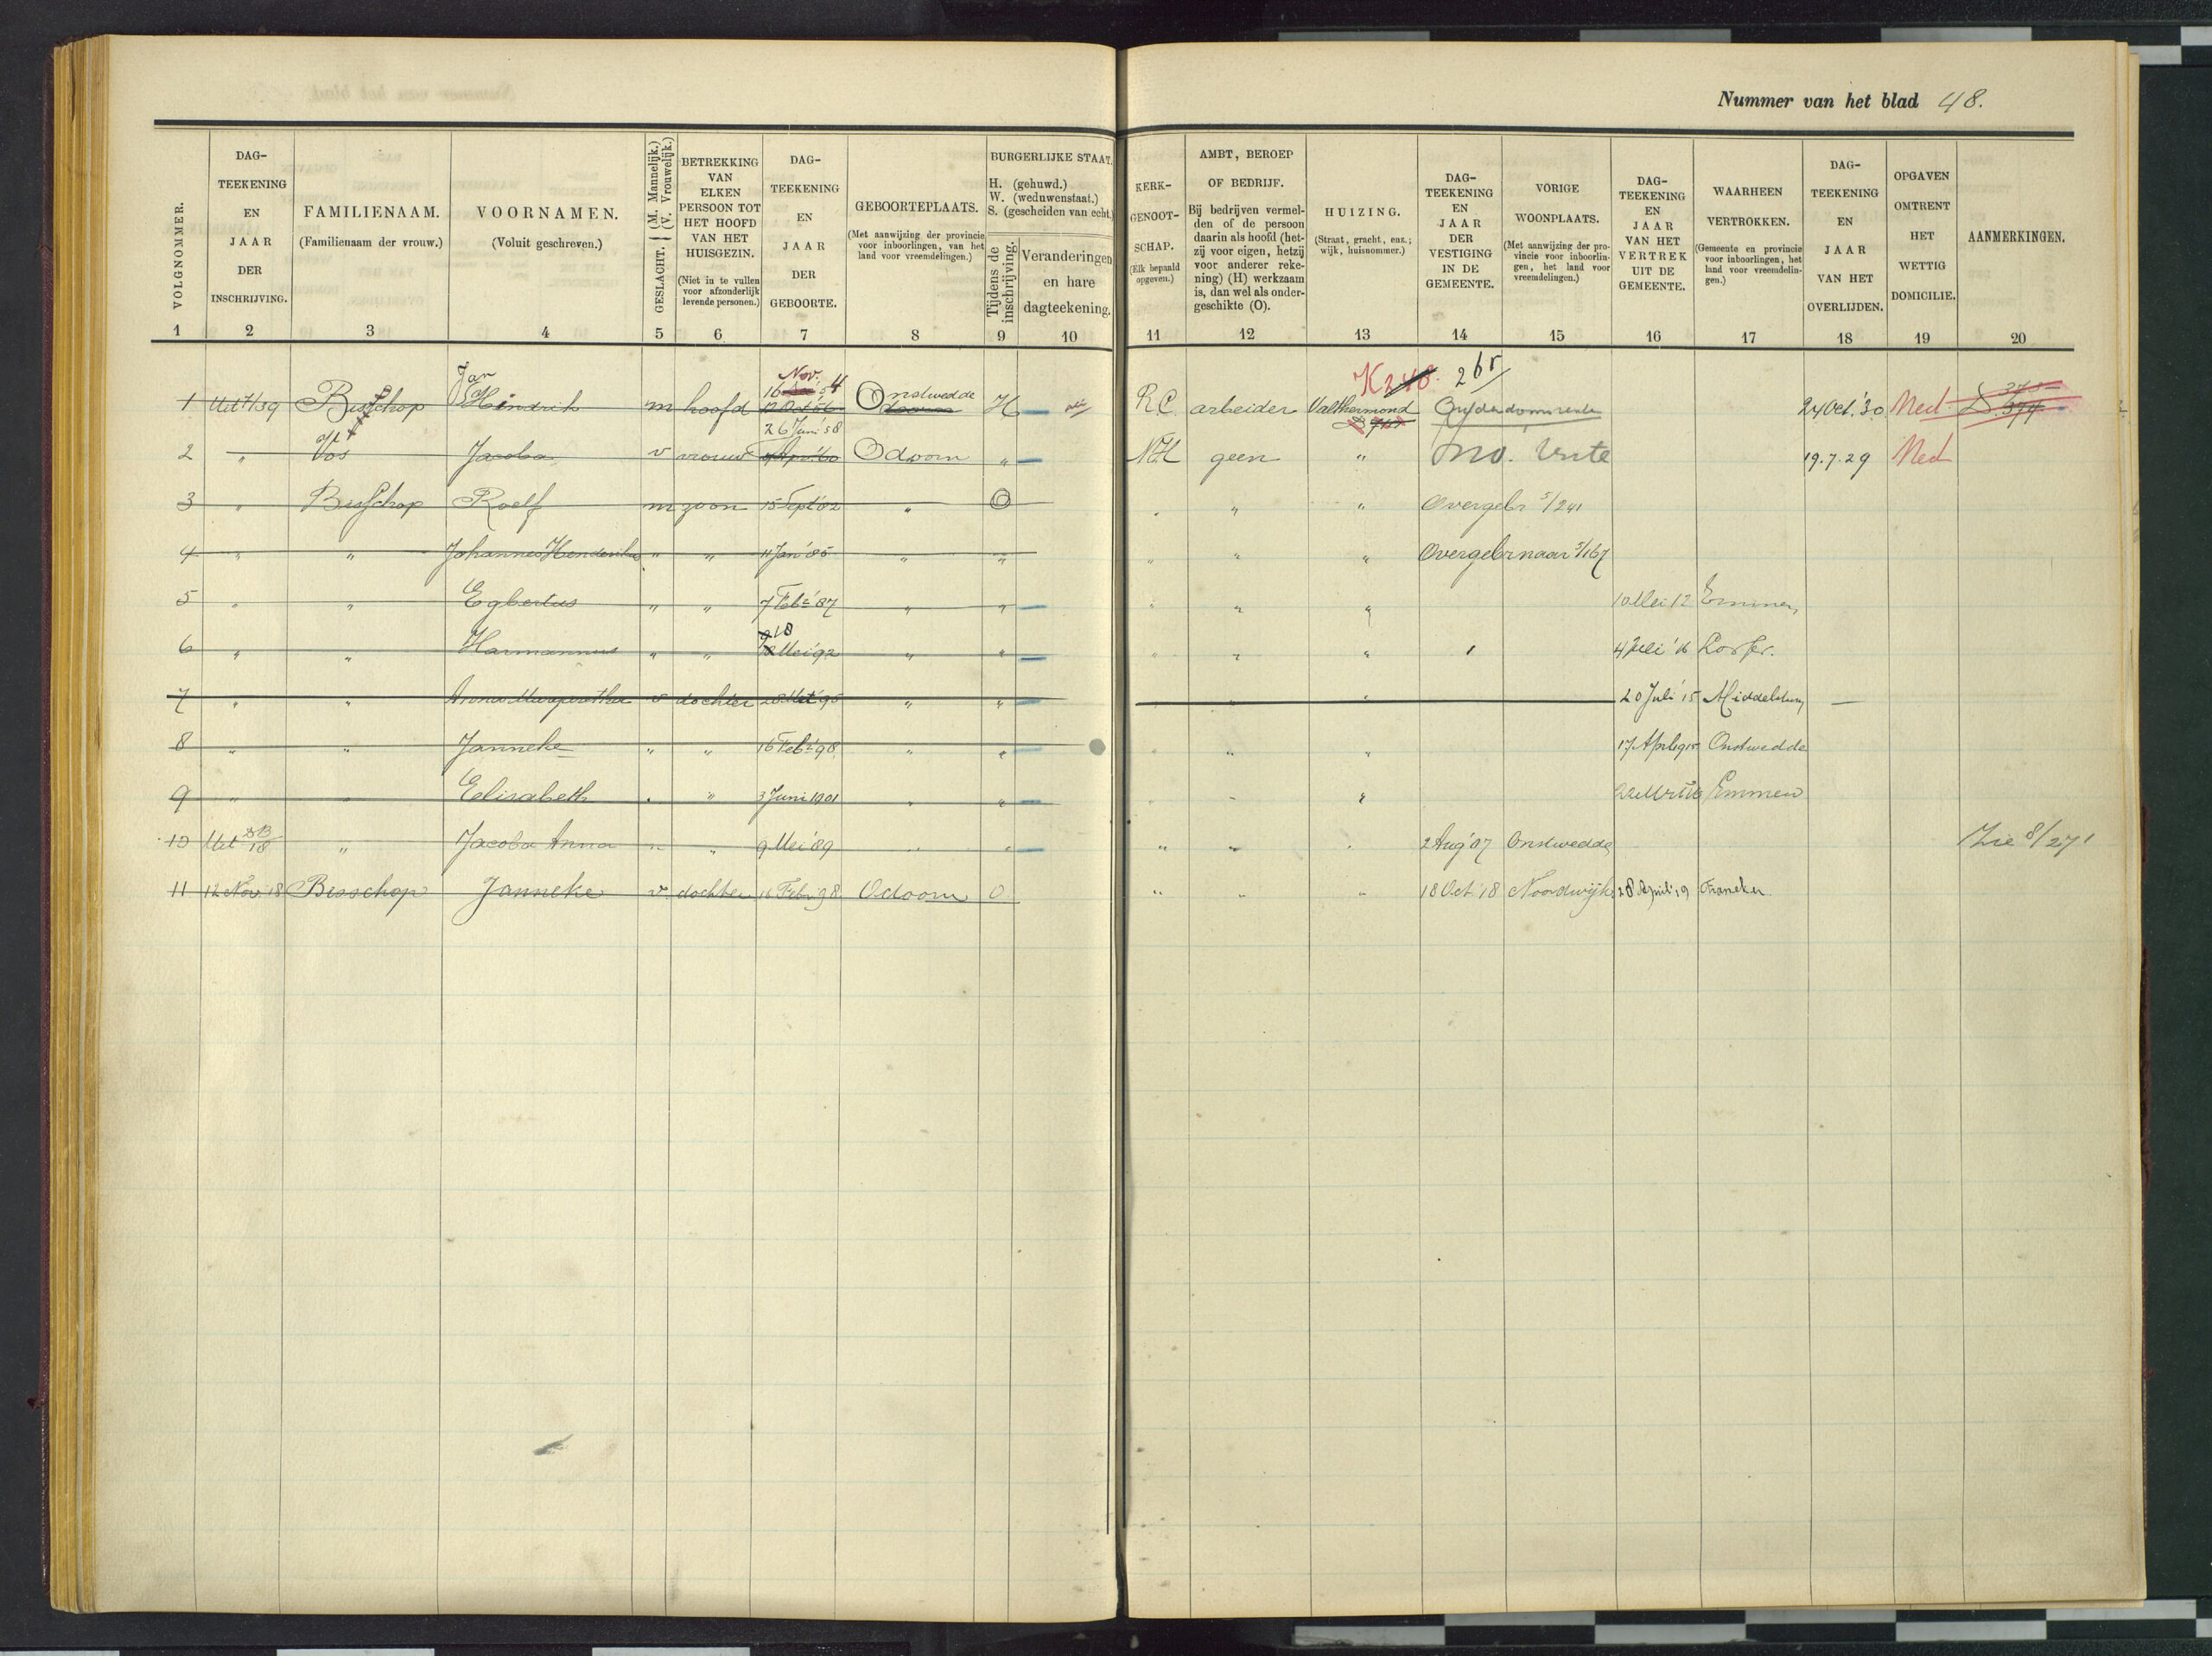 Nummer van het blad 48.
VOLGNOMMER.
DAG-
TEEKENING
EN
JAAR
DER
INSCHRIJVING.
FAMILIENAAM.
(Familienaam der vrouw.)
VOORNAMEN.
(Voluit geschreven.)
GESLACHT. (M. Mannelijk.) (V. Vrouwelijk.)
BETREKKING
VAN
ELKEN
PERSOON TOT
HET HOOFD
VAN HET
HUISGEZIN.
(Niet in te vullen
voor afzonderlijk
levende personen.)
DAG-
TEEKENING
EN
JAAR
DER
GEBOORTE.
GEBOORTEPLAATS.
(Met aanwijzing der provincie
voor inboorlingen, van het
land voor vreemdelingen.)
BURGERLIJKE STAAT.
H. (gehuwd.)
W. (weduwenstaat.)
S. (gescheiden van echt.)
Tijdens de
inschrijving.
Veranderingen
en hare
dagteekening.
KERK-
GENOOT-
SCHAP.
(Elk bepaald
opgeven.)
AMBT, BEROEP
OF BEDRIJF.
Bij bedrijven vermel-
den of de persoon
daarin als hoofd (het-
zij voor eigen, hetzij
voor anderer reke-
ning) (H) werkzaam
is, dan wel als onder-
geschikte (O).
HUIZING.
(Straat, gracht, enz.;
wijk, huisnommer.)
DAG-
TEEKENING
EN
JAAR
DER
VESTIGING
IN DE
GEMEENTE.
VORIGE
WOONPLAATS.
(Met aanwijzing der pro-
vincie voor inboorlin-
gen, het land voor
vreemdelingen.)
DAG-
TEEKENING
EN
JAAR
VAN HET
VERTREK
UIT DE
GEMEENTE.
WAARHEEN
VERTROKKEN.
(Gemeente en provincie
voor inboorlingen, het
land voor vreemdelin-
gen.)
DAG-
TEEKENING
EN
JAAR
VAN HET
OVERLIJDEN.
OPGAVEN
OMTRENT
HET
WETTIG
DOMICILIE.
AANMERKINGEN.
1 2 3 4 5 6 7 8 9 10 11 12 13 14 15 16 17 18 19 20
Jan Nov. K 248. 265
16 54 Onstwedde 375
1 Uit H 39 Bisschop Hindrik m hoofd 12 Oct 56 Odoorn H R.C. arbeider Valthermond 24 Oct. '30 Ned. D. 374
26 Juni '58
2 " Vos Jacoba v vrouw Apr. '60 Odoorn " N.H. geen " 19.7.29 Ned
3 " Bisschop Roelf m zoon 15 Sept '82 " O " " " Overgebr 5/241
4 " " Johannes Henderikus " " 11 Jan '85 " " " " " Overgebr naar 5/167
5 " " Egbertus " " 7 Feb. '87 " " " " " 10 Mei 12 Emmen
18
6 " " Harmannus " " Mei '92 " " " " " 4 Juli '16
7 " " Anna Margaretha v dochter 28 '95 " " " " " 20 Juli '15 Middelstum
8 " " Janneke " " 16 Feb. '98 " " " " " 17 April 1915 Onstwedde
9 " " Eelisabeth " " 3 Juni 1901 " " " " " Emmen
10 Uit 18 " Jacoba Anna " " 9 Mei '89 " " " " " 2 Aug '07 Onstwedde Zie 8/271
11 12 Nov. 18 Bisschop Janneke v. dochter 16 Febr. 98 Odoorn O " " " 18 Oct '18 Noordwijk 28 April '19 Franeker